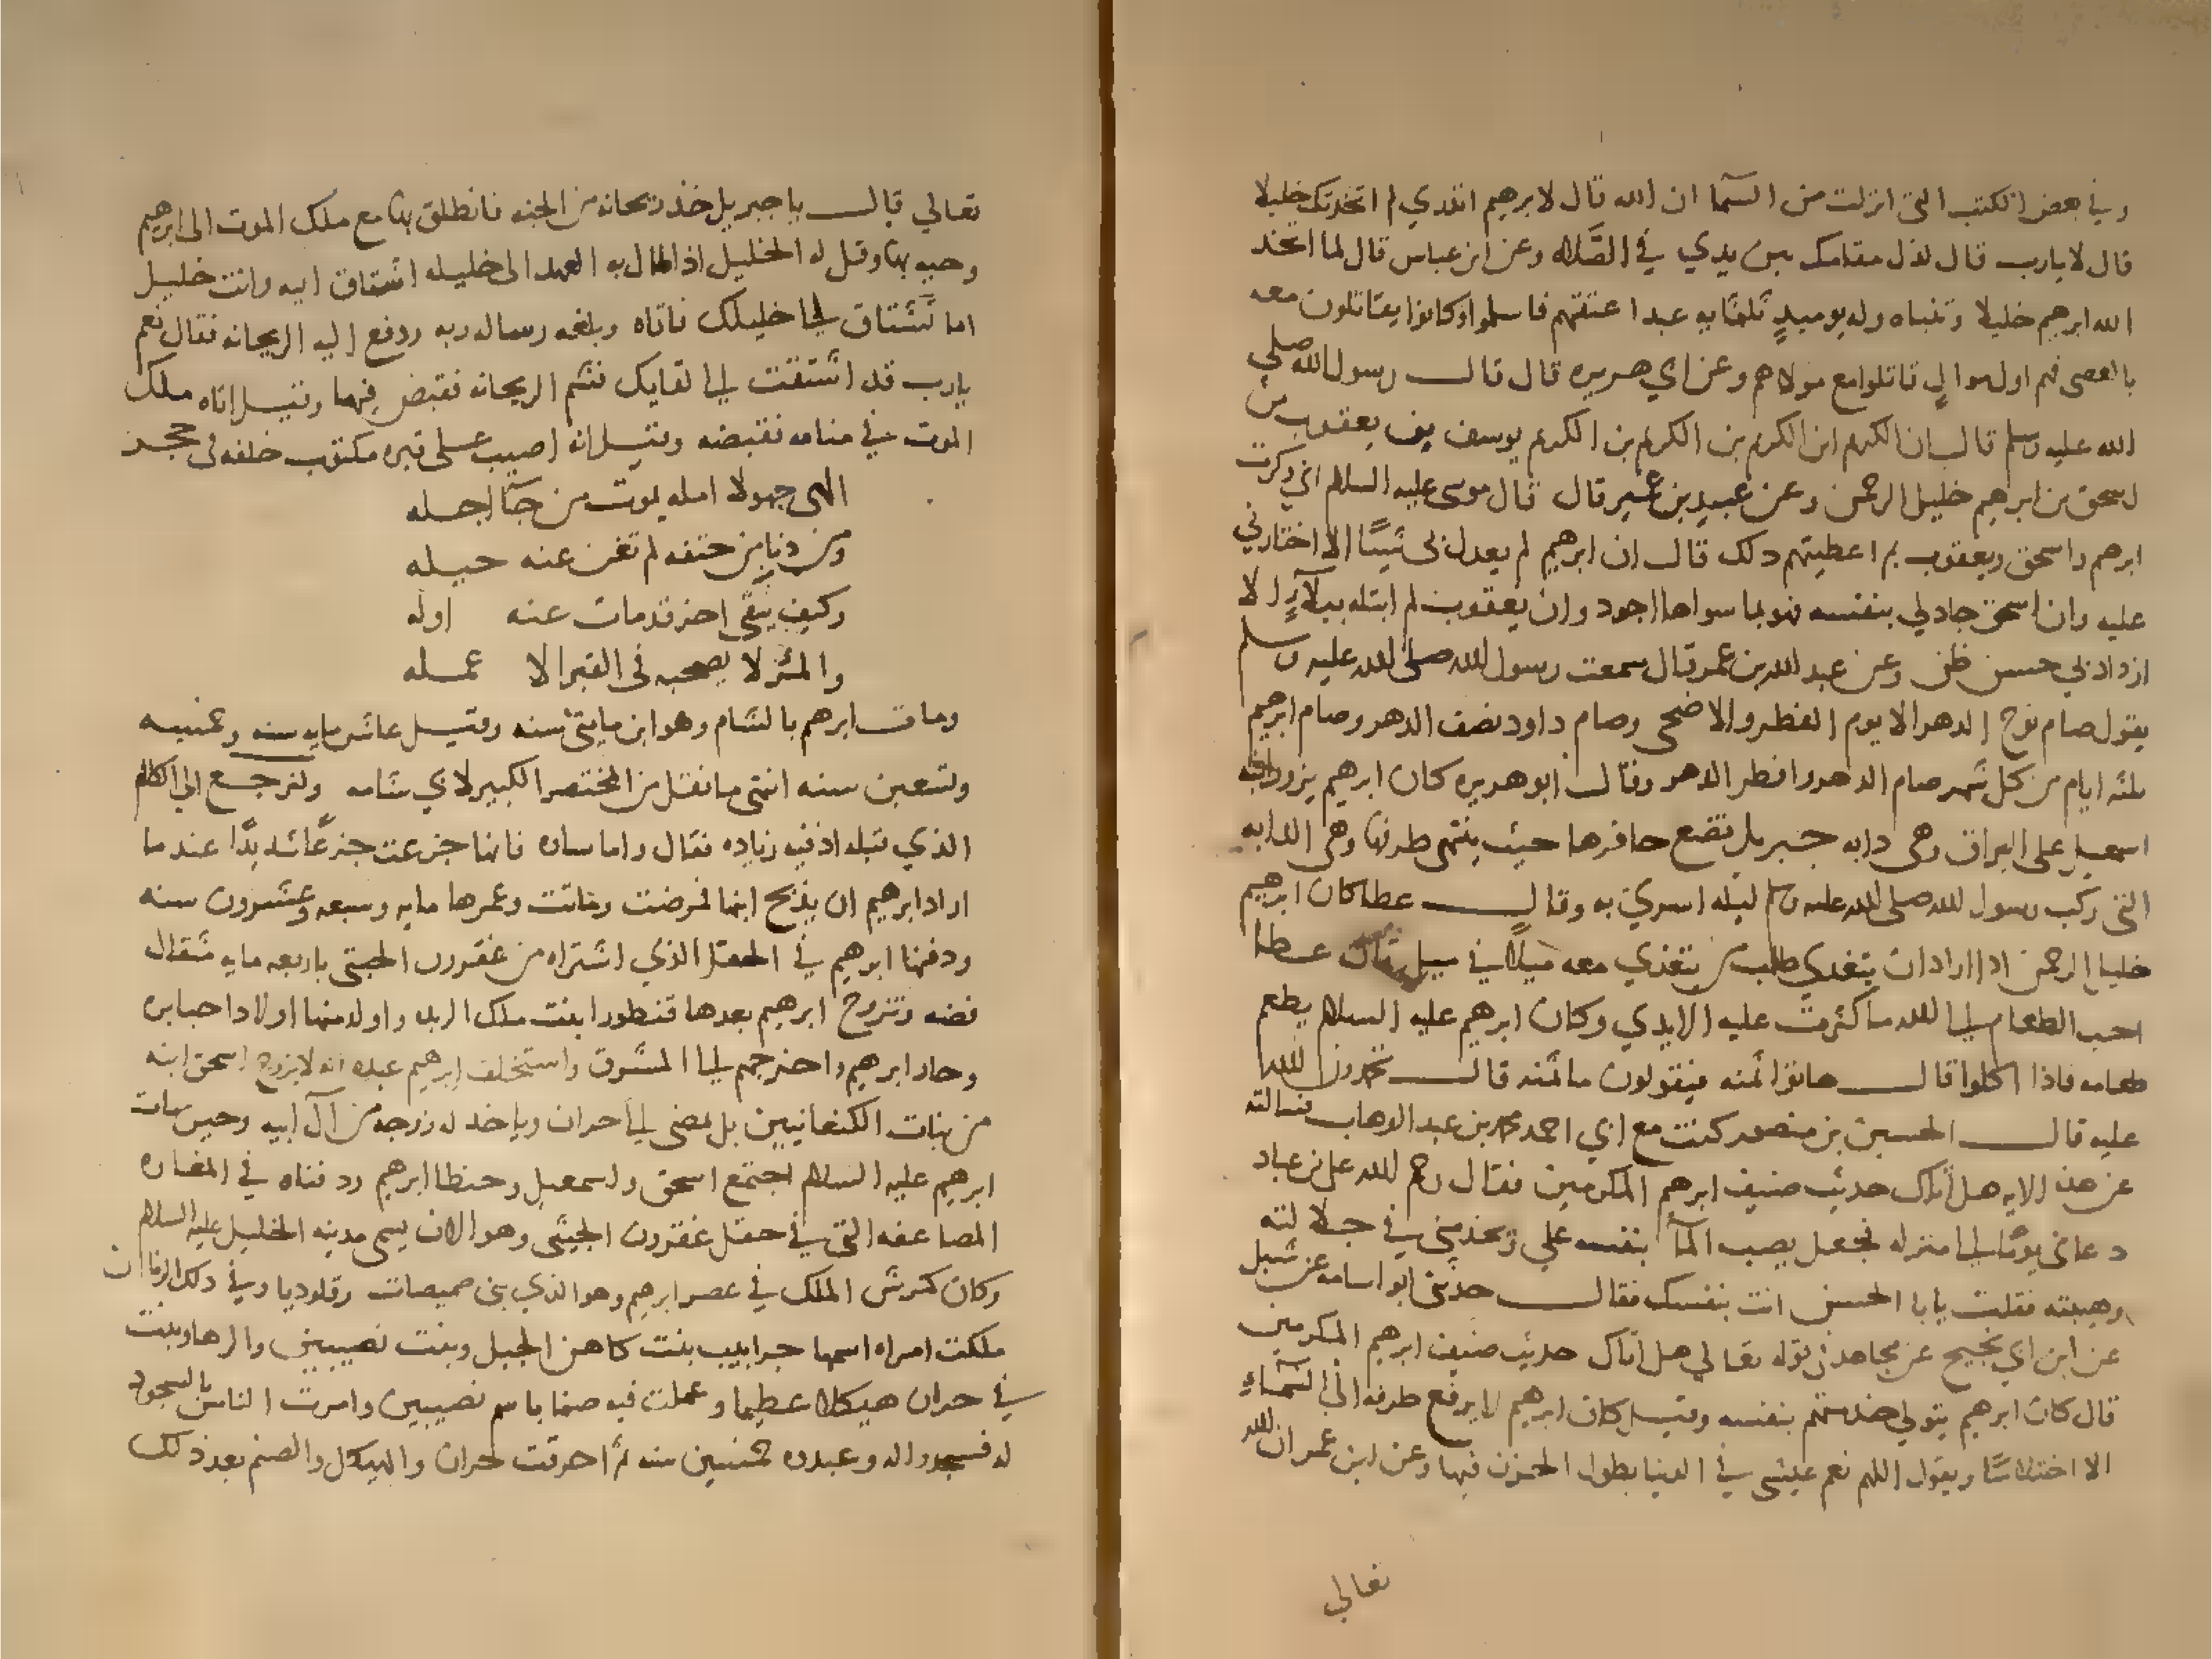 وفي بعض الكتب التي انزلت من السما ان الله قال لابرهيم اتدري لم اتخذتك خليلا
قال لا يارب قال لذل مقامك بين يدي في الصلاه وعن ابن عباس قال لما اتخذ
الله ابرهيم خليلا وتنباه وله يوميذ ثلثمايه عبد اعتقهم فاسلموا وكانوا يقاتلون معه
بالعصي فهم اول موالي قاتلوا مع مولاهم وعن ابي هريره قال قال رسول الله صلي
الله عليه وسلم قال ان الكريم ابن الكريم بن الكريم بن الكريم يوسف بن يعقوب بن
اسحق بن ابرهيم خليل الرحمن وعن عبيد بن عمير قال قال موسى عليه السلام اني ذكرت
ابرهم واسحق ويعقوب بم اعطيتهم دلك قال ان ابرهيم لم يعدل بي شيئا الا اختارني
عليه وان اسحق جاد لي بنفسه فهو بما سواها اجود وان يعقوب لم ابتله ببلاء الا
ازداد بي حسن ظن وعن عبد الله بن عمر قال سمعت رسول الله صلى الله عليه وسلم
يقول صام نوح الدهر الا يوم الفطر والاضحى وصام داود نصف الدهر وصام ابرهيم
ثلثه ايام من كل شهر صام الدهر وافطر الدهر وقال ابو هريره كان ابرهيم يزور ابنه
اسمعيل على البراق وهي دابه جبريل تضع حافرها حيث ينتهي طرفها وهي الدابه
التي ركب رسول الله صلى الله عليه وسلم ليله اسري به وقال عطا كان ابرهيم
خليل الرحمن اذا اراد ان يتغدي طلب من يتغدي معه ميلا في ميل قال عطا
احب الطعام الي الله ما كثرت عليه الايدي وكان ابرهيم عليه السلام يطعم
طعامه فاذا اكلوا قال هاتوا ثمنه فيقولون ما ثمنه قال تحمدون الله
عليه قال الحسين بن منصور كنت مع ابي احمد محمد بن عبد الوهاب فسالته
عن هذه الايه هل اتاك حديث ضيف ابرهم المكرمين فقال رحم الله علي بن عباد
دعاني يوما الي منزله فجعل يصب الما بنفسه علي وتخدمني في جلالته
وهيبته فقلت يابا الحسن انت بنفسك فقال حدثني ابو اسامه عن شبل
عن ابن ابي نجيح عن مجاهد في قوله تعالي هل اتاك حديث ضيف ابرهيم المكرمين
قال كان ابرهيم يتولي خدمتهم بنفسه وقيل كان ابرهيم لا يرفع طرفه الى السماء
الا اختلاسا ويقول اللهم نعم عيشي في الدنيا بطول الحزن فيها وعن ابن عمر ان الله
تعالي
تعالي قال يا جبريل خذ ريحانه من الجنه فانطلق بها مع ملك الموت الى ابرهيم
وحيه بها وقل له الخليل اذا طال به العهد الى خليله اشتاق اليه وانت خليل
اما تشتاق الي خليلك فاتاه وبلغه رساله ربه ودفع اليه الريحانه فقال نعم
يارب قد اشتقت الي لقايك فشم الريحانه فقبض فيها وقيل اتاه ملك
الموت في منامه فقبضه وقيل انه اصيب على قبره مكتوب خلفه في حجر
الهى جهولا امله يموت من جا اجله
ومن دنا من حتفه لم تغن عنه حيله
وكيف يبقى اخر قد مات عنه اوله
والمرء لا يصحبه في القبر الا عمله
ومات ابرهم بالشام وهو ابن مايتي سنه وقيل عاش مايه سنه وخمسه
وتسعين سنه انتهى ما نقل من المختصر الكبير لابي شامه ولنرجع الي الكلام
الذي قبله اذ فيه زياده فقال واما ساره فانها جزعت جزعا شديدا عند ما
اراد ابرهيم ان يذبح ابنها فمرضت وماتت وعمرها مايه وسبعه وعشرون سنه
ودفنها ابرهيم في الحقل الذي اشتراه من عفرون الحيتي باربعه مايه مثقال
فضه وتزوج ابرهيم بعدها قنطورا بنت ملك الربه واولد منها اولادا جبابره
وحاد ابرهيم واخرجهم الي المشرق واستخلف ابرهيم عبده انه لا يزوج اسحق ابنه
من بنات الكنعانيين بل يمضي الي حران وياخذ له زوجه من آل ابيه وحين مات
ابرهيم عليه السلام اجتمع اسحق واسمعيل وحنطا ابرهيم ودفناه في المغاره
المضاعفه التي في حقل عفرون الحيثي وهو الان يسمى مدينه الخليل عليه السلام
وكان كمرش الملك في عصر ابرهيم وهو الذي بنى صميصات وقلوديا وفي دلك الزمان
ملكت امراه اسمها جرابيب بنت كاهن الجبل وبنت نصيبين والرها وبنت
في حران هيكلا عظيما وعملت فيه صنما باسم نصيبين وامرت الناس بالسجود
له فسجدوا له وعبدوه خمسين سنه ثم احرقت حران والهيكل والصنم بعد ذلك